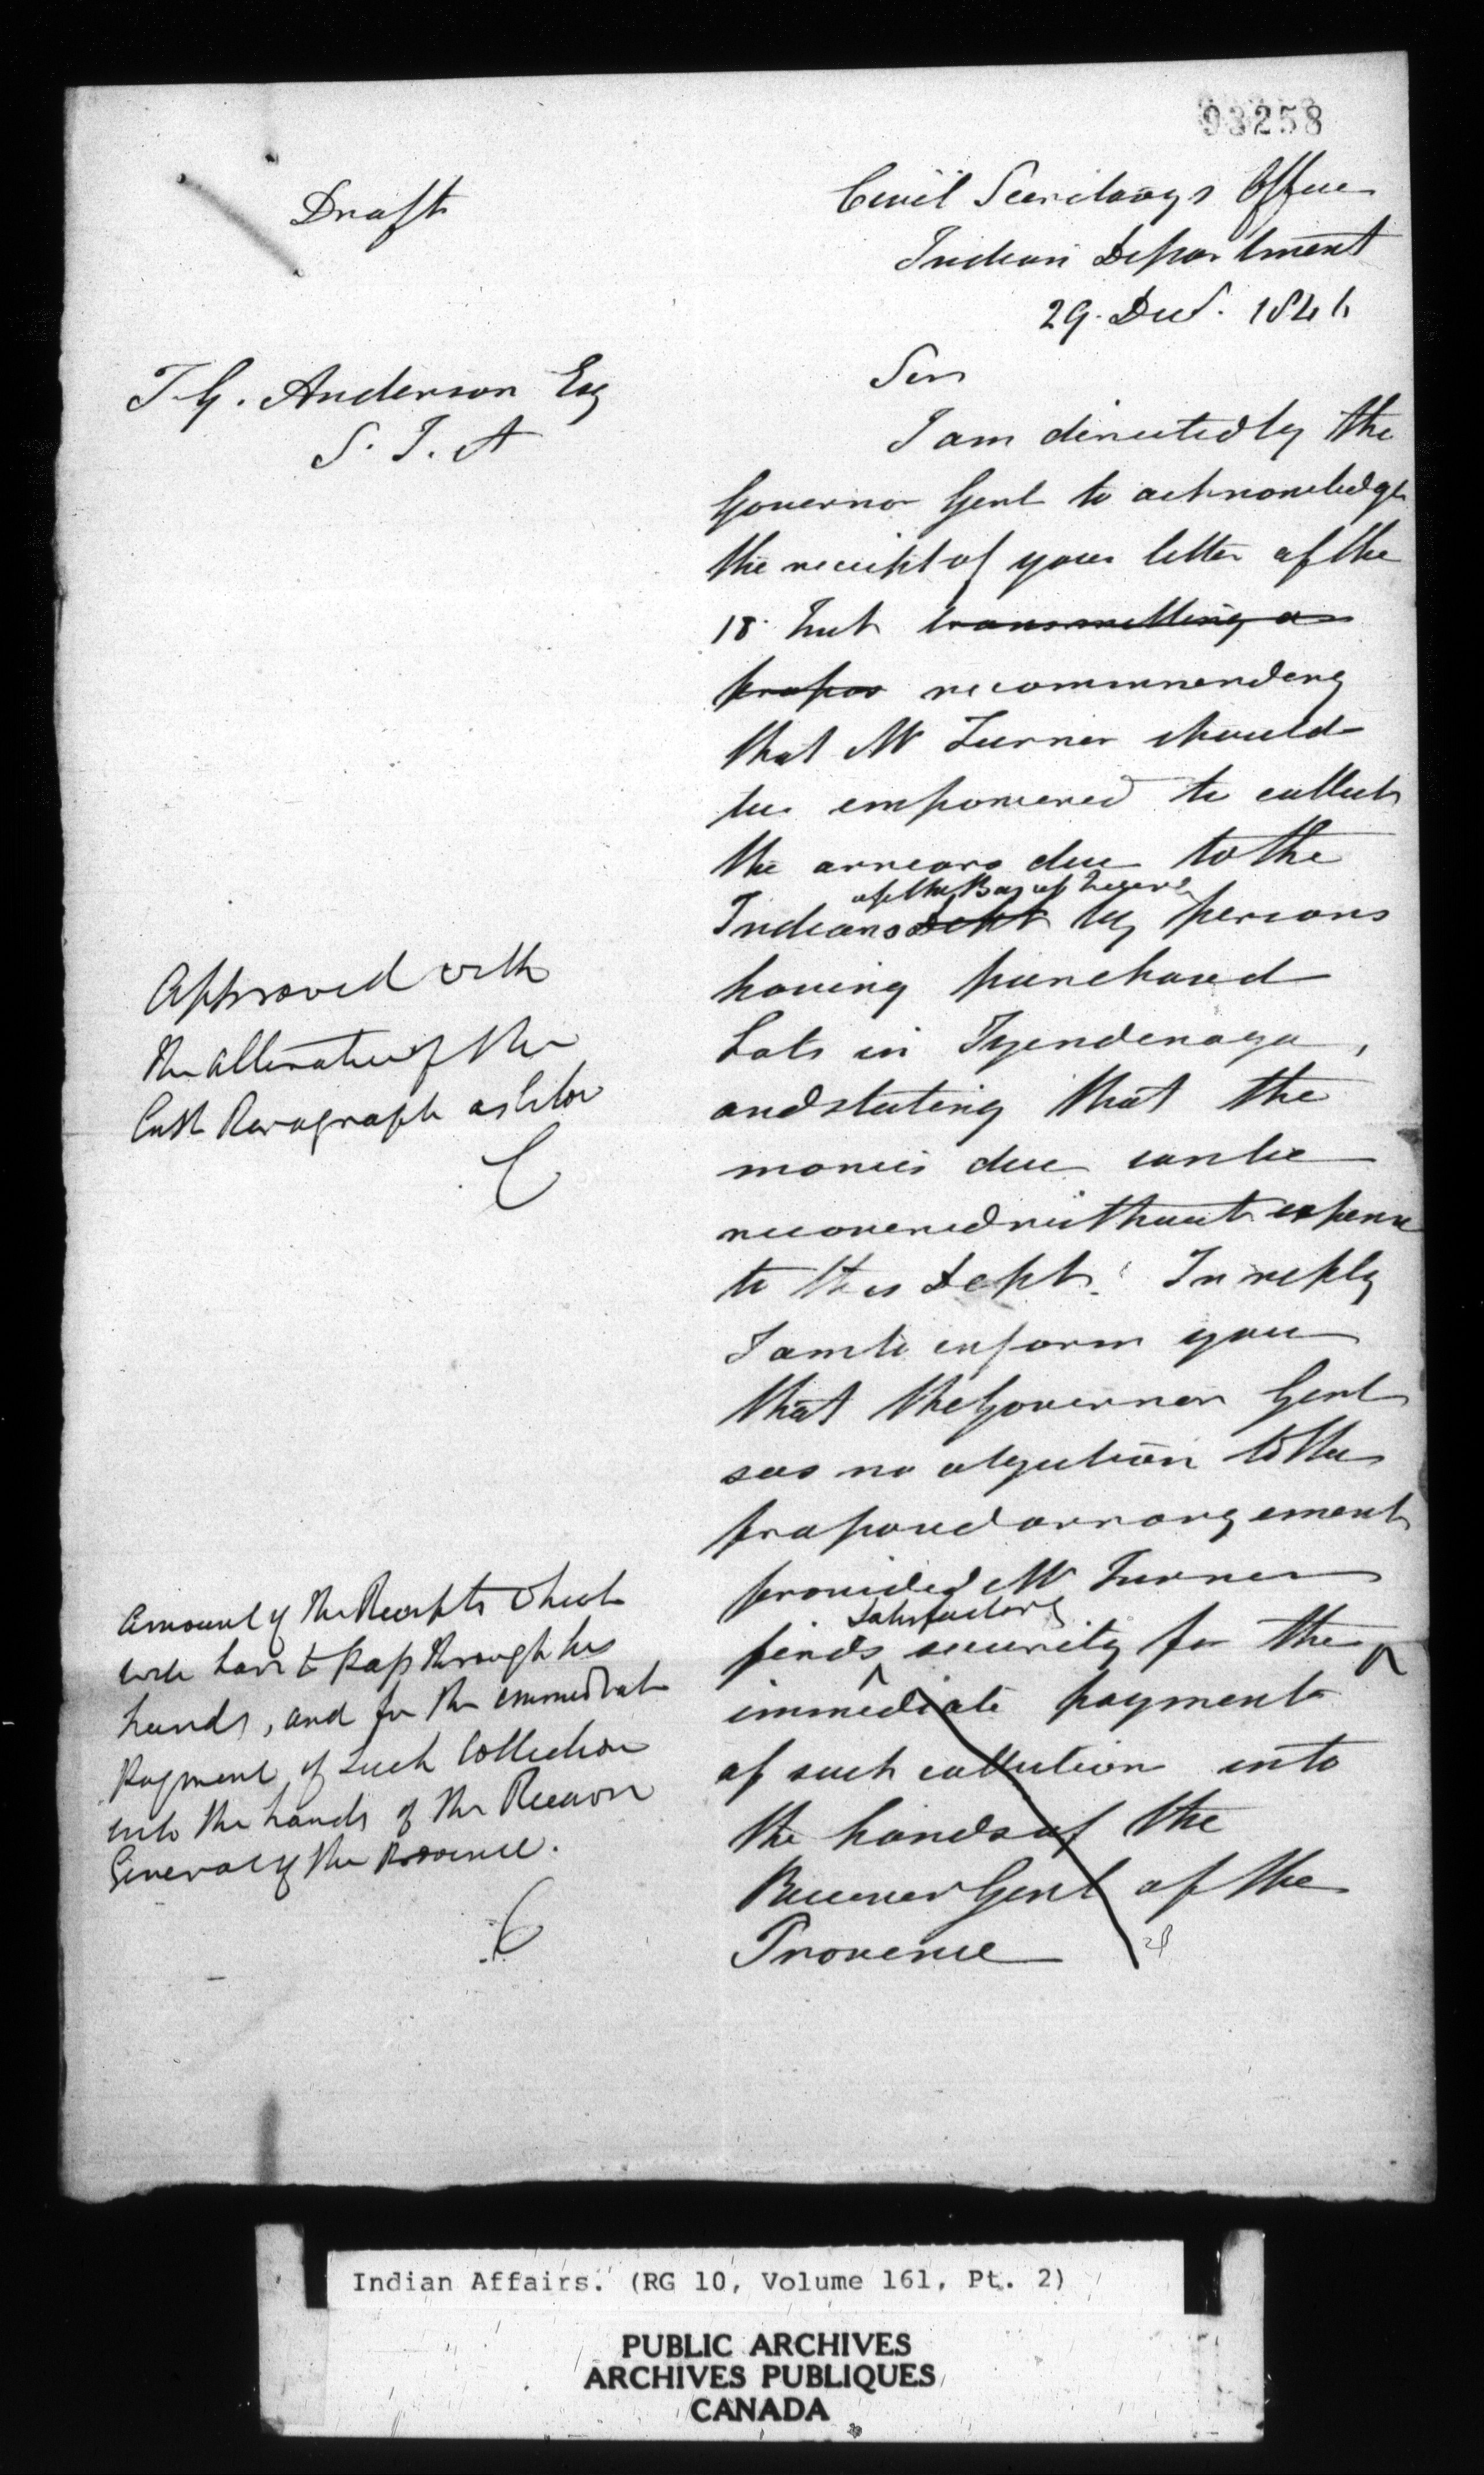 93258
Draft
Civil Secretarys Office
Indian Department
29. Decr. 1846
T. G. Anderson Esq
S. I. A
Sir
I am directed by the
Governor Genl to acknowledge
the receipt of your letter of the
18 Inst transmitting a
propos recommending
that Mr Turner should
be empowered to collect
the arrears due to the
of the Bay of
Indians Dept by persons
having purchased
Lots in Tyendenaga,
and stating that the
monies due can be
recovered without expense
to this Dept. In reply
I am to inform you
that the Governor Genl
sees no objection to the
proposed arrangement
provided Mr Turner
satisfactory
finds security for the
immediate payment
of such collection into
the hands of the
Receiver Genl of the
Province
Approved with
the alteration of the
last Paragraph as below
C
amount of the Receipts which
will have to pass through his
hands, and for the immediate
Payment of such Collection
into the hands of the Receiver
General of the Province.
C
Indian Affairs. (RG 10, Volume 161, Pt. 2)
PUBLIC ARCHIVES
ARCHIVES PUBLIQUES
CANADA